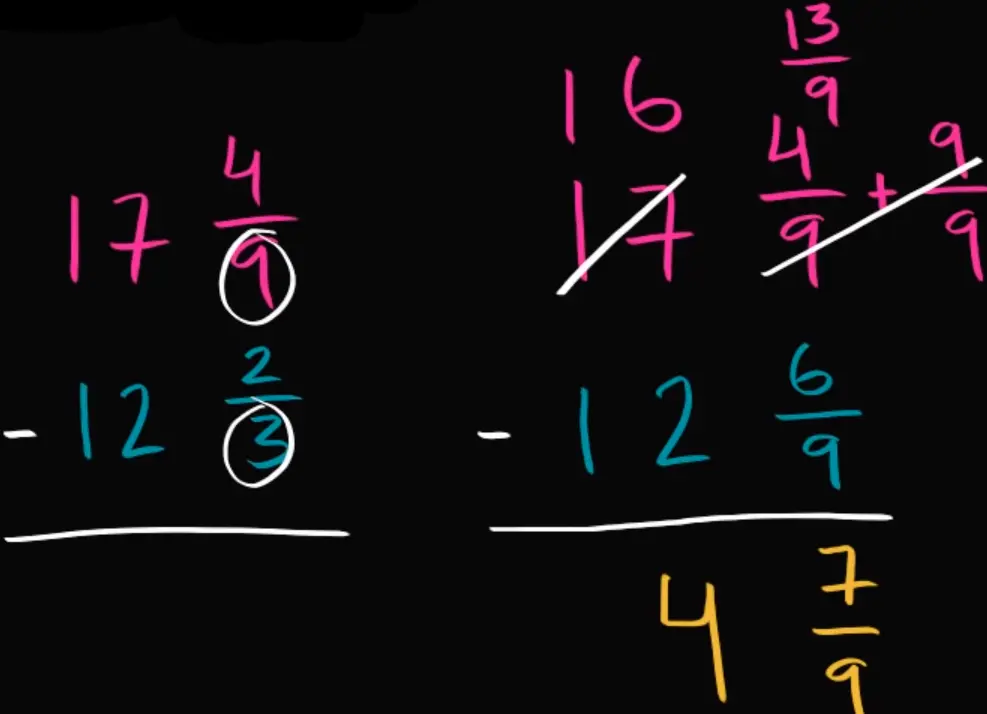 17 4/9
- 12 2/3
16 13/9
17 4/9 + 9/9
- 12 6/9
4 7/9